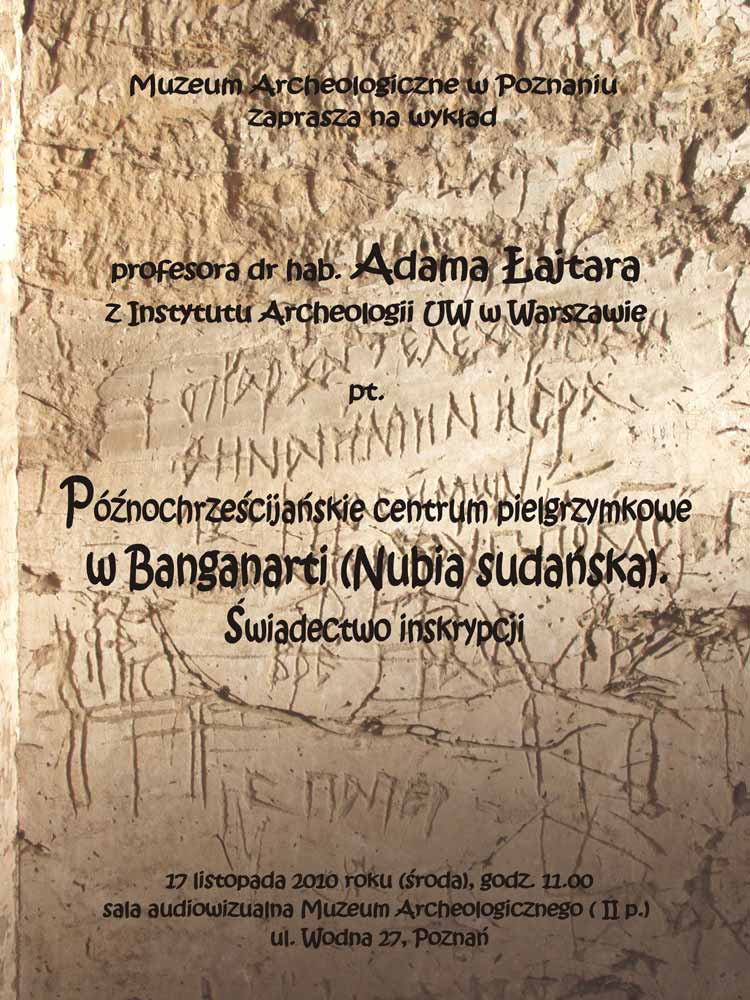 Muzeum Archeologiczne w Poznaniu
zaprasza na wykład
profesora dr hab. Adama Łajtara
z Instytutu Archeologii UW w Warszawie
pt.
Późnochrześcijańskie centrum pielgrzymkowe
w Banganarti (Nubia sudańska).
Świadectwo inskrypcji
17 listopada 2010 roku (środa), godz. 11.00
sala audiowizualna Muzeum Archeologicznego ( II p.)
ul. Wodna 27, Poznań